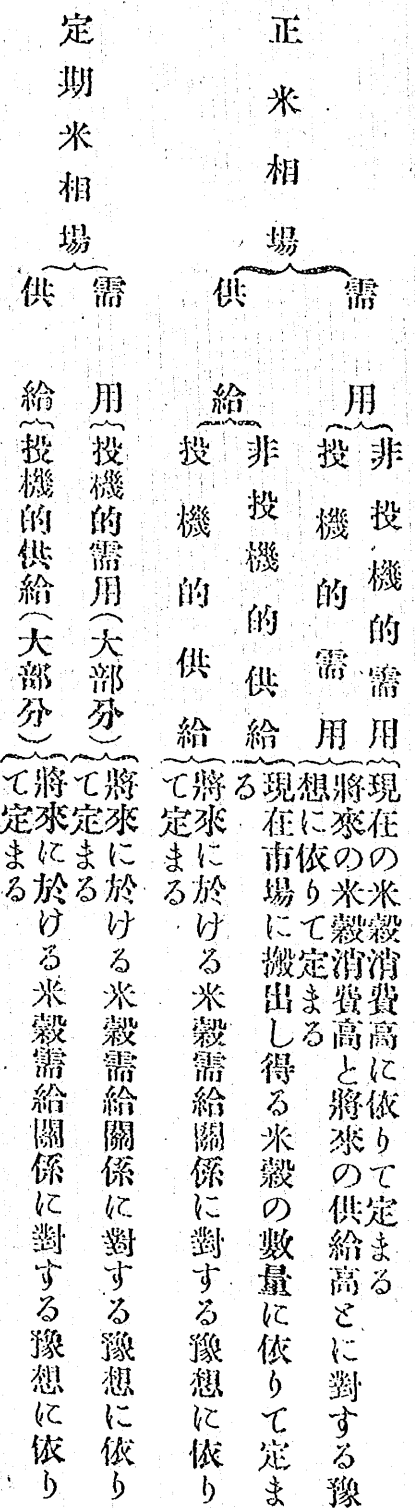 正米相場
需用
非投機的需用
現在の米穀消費高に依りて定まる
投機的需用
將來の米穀消費高と將來の供給高とに對する豫
想に依りて定まる
供給
非投機的供給
現在市場に搬出し得る米穀の數量に依りて定ま
る
投機的供給
將來に於ける米穀需給關係に對する豫想に依り
て定まる
定期米相場
需用
投機的需用(大部分)
將來に於ける米穀需給關係に對する豫想に依り
て定まる
供給
投機的供給(大部分)
將來に於ける米穀需給關係に對する豫想に依り
て定まる